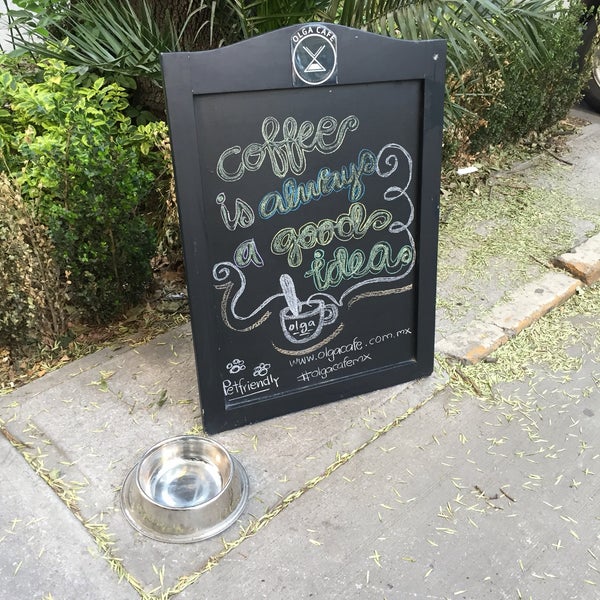 OLGA CAFÉ
coffee
is always
a good
idea
olga
www.olgacafe.com.mx
Petfriendly #olgacafemx